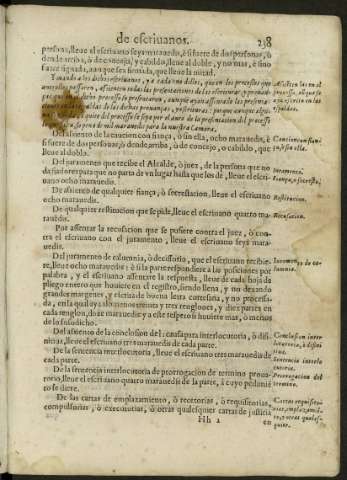 de escriuanos. 238
persona, lleue el escriuano seys marauedis, è si fuere de dos personas, ò
dende arriba, ò de concejo, y cabildo, lleue al doble, y no mas, è sino
fuere signada, aunque sea firmada, que lleue la mitad.
Y mando a los dichos escriuanos, y a cada vno dellos, que en los processos que
passaren, assienten todas las presentaciones de las escrituras, y prouanças
processo se presentaren, aunque ayan assentado la presentacion
espaldas de las dichas prouanças, y escrituras: porque
quier del processo se sepa el autor de la presentacion
so pena de mil marauedis para la nuestra Camara.
Assienten las en el
processo, aunque se
ayan escrito en las
espaldas.
Del assiento de la caucion con fiança, ò sin ella, ocho marauedis, è
si fuere de dos personas, ò dende arriba, ò de concejo, ò cabildo, que
lleue al doble.
Caucion con fian-
ça, ò sin ella.
Del juramento que recibe el Alcalde, ò juez, de la persona que no
da fiadores para que no parta de vn lugar hasta que les dè, lleue el escri-
uano ocho marauedis.
Iuramento.
Fiança, ò secresto,
De assiento de qualquier fiança, ò secrestacion, lleue el escriuano
ocho marauedis.
De qualquier restitucion que se pide, lleue el escriuano quatro ma-
rauedis.
Restitucion.
Por assentar la recusacion que se pusiere contra el juez, ò con-
tra el escriuano con el juramento, lleue el escriuano seys mara-
uedis.
Recusacion.
Del juramento de calumnia, ò decisorio, que el escriuano recibie-
re, lleue ocho marauedis: è si la parte respondiere a las posiciones por
palabra, y el escriuano assentare la respuesta, lleue de cada hoja de
pliego entero que huuiere en el registro, siendo llena, y no dexando
grandes margenes, y escrita de buena letra cortesana, y no processa-
da, en la qual aya a lo menos treynta y tres renglones, y diez partes en
cada renglon, doze marauedis y a este respeto si huuiere mas, ò menos
de lo susodicho.
Iuramento de ca-
lumnia.
Del assiento de la conclusion de la causa para interlocutoria, ò difi-
nitiua, lleue el escriuano tres marauedis de cada parte.
Conclusion inter-
locutoria, ò difini
tiua.
De la sentencia interlocutoria, lleue el escriuano tres marauedis de
cada parte.
Sentencia interlo
cutoria.
De la sentencia interlocutoria de prorrogacion de termino proua-
torio, lleue el escriuano quatro marauedis de la parte, à cuyo pedimiẽ-
to se diere.
Prorrogacion del
termino.
De las cartas de emplazamiento, ò recetorias, ò requisitorias,
compulsorias, ò executorias, ò otras qualesquier cartas de justicia
Cartas requisito-
rias, emplazamiẽ-
to, y otras quales-
quier.
Hh 2 en